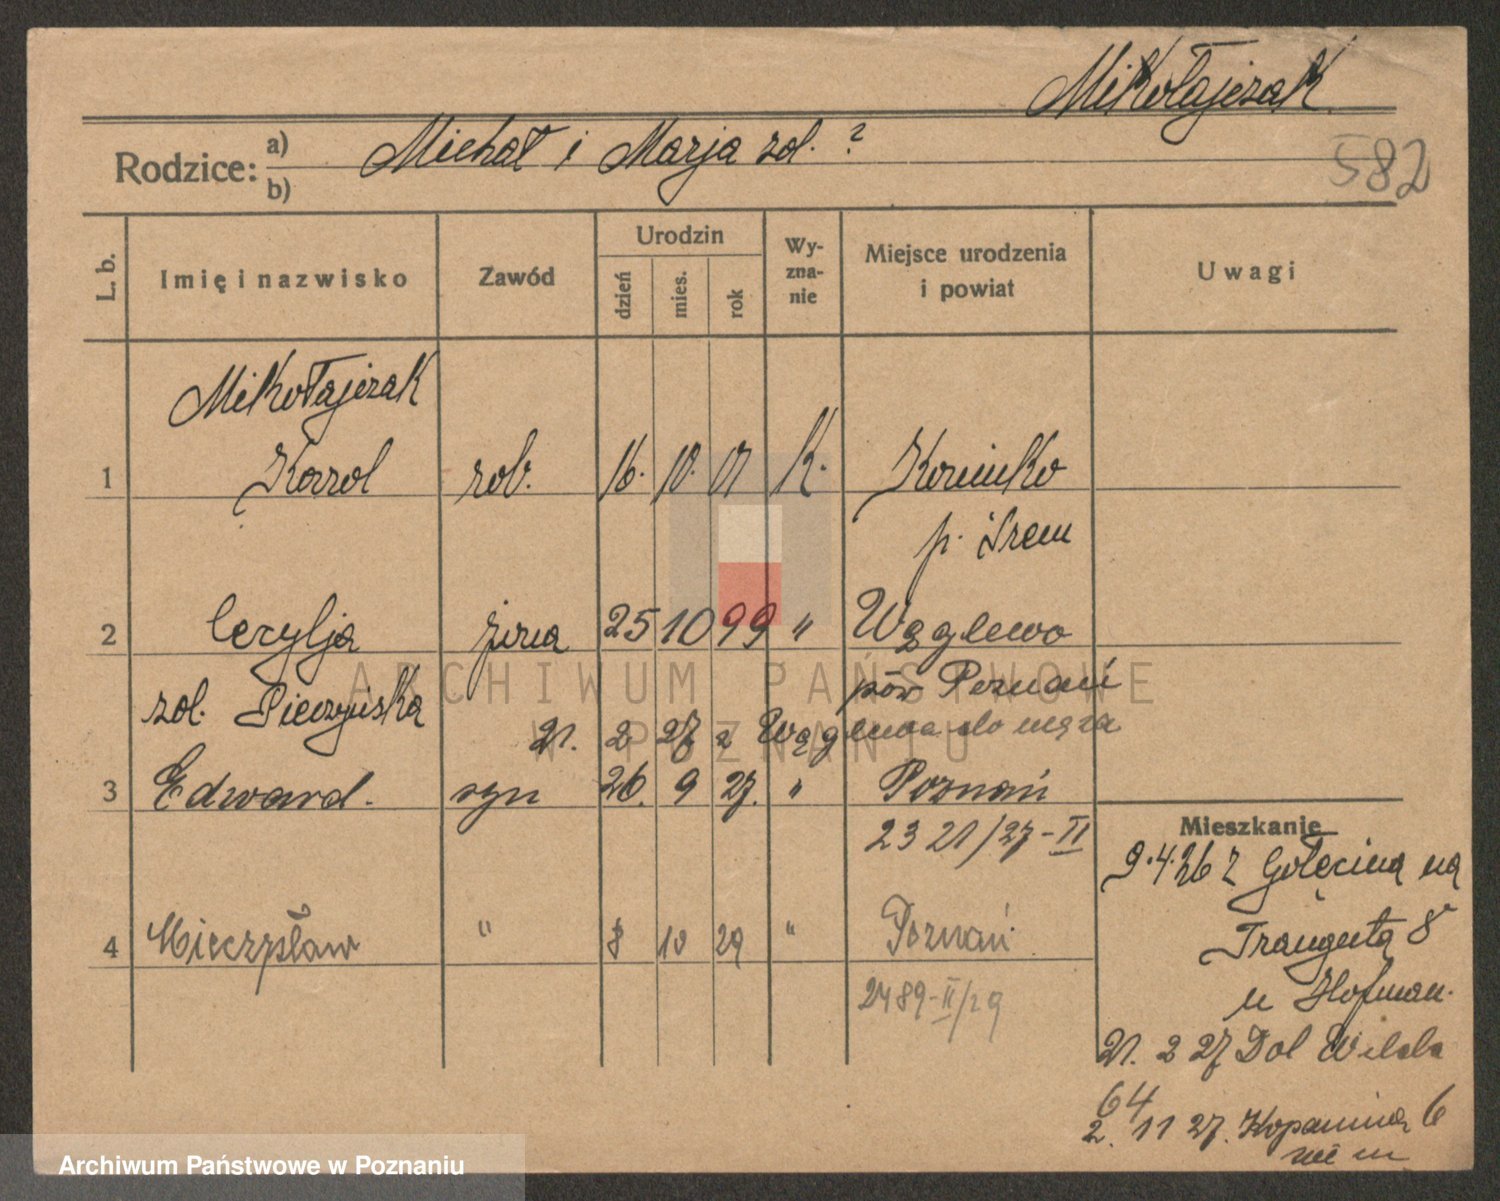 Mikołajczak
Rodzice: a) Michał i Marja zol. ?
b)
582
L. b.
Imię i nazwisko
Zawód
Urodzin
dzień
mies.
rok
Wy-
zna-
nie
Miejsce urodzenia
i powiat
Uwagi
Mikołajczak
1 Karol rob. 16. 10. 01 K.
p. Śrem
2 Cecylja żona 25 10 99 " Wąglewo
zol. pow Poznań
21. 2 27 z Wąglewa do męża
3 Edward. syn 26. 9 27. " Poznań
2321/27-II
4 Mieczysław " 8 10 29 " Poznań
2489-II/29
Mieszkanie
9.4.26 z Golęcina na
Traugutta 8
u Hofman.
21. 2 27 Dol Wilda
64
2. 11 27. Kopanina 6
ARCHIWUM PAŃSTWOWE
W POZNANIU
Archiwum Państwowe w Poznaniu